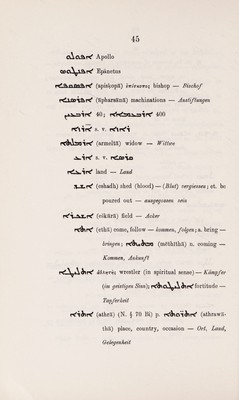 45
ܐܦܠܘ Apollo
ܐܦܢܛܘܣ Epänetus
ܐܦܣܩܘܦܐ (apisḳopā) ἐπίσκοπος bishop — Bischof
(āpharsānā) machinations — Anstiftungen
ܐܪܒܥܝܢ 40; ܐܪܒܥܡܐܐ 400
s. v.
ܐܪܡܠܬܐ (armeltā) widow — Witwe
s. v.
ܐܪܥܐ land — Land
ܐܫܕ (eshadh) shed (blood) — (Blut) vergiessen; et. be
poured out — ausgegossen sein
(eḳārā) field — Acker
ܐܬܐ (ethā) come, follow — kommen, folgen; a. bring —
bringen; ܡܐܬܝܬܐ (mēthīthā) n. coming —
Kommen, Ankunft
ܐܬܠܝܛܐ ἀθλητής wrestler (in spiritual sense) — Kämpfer
(im geistigen Sinn); ܐܬܠܝܛܘܬܐ fortitude —
Tapferkeit
ܐܬܪܐ (athrā) (N. § 70 B) p. ܐܬܪܘܬܐ (athrawā-
thā) place, country, occasion — Ort, Land,
Gelegenheit